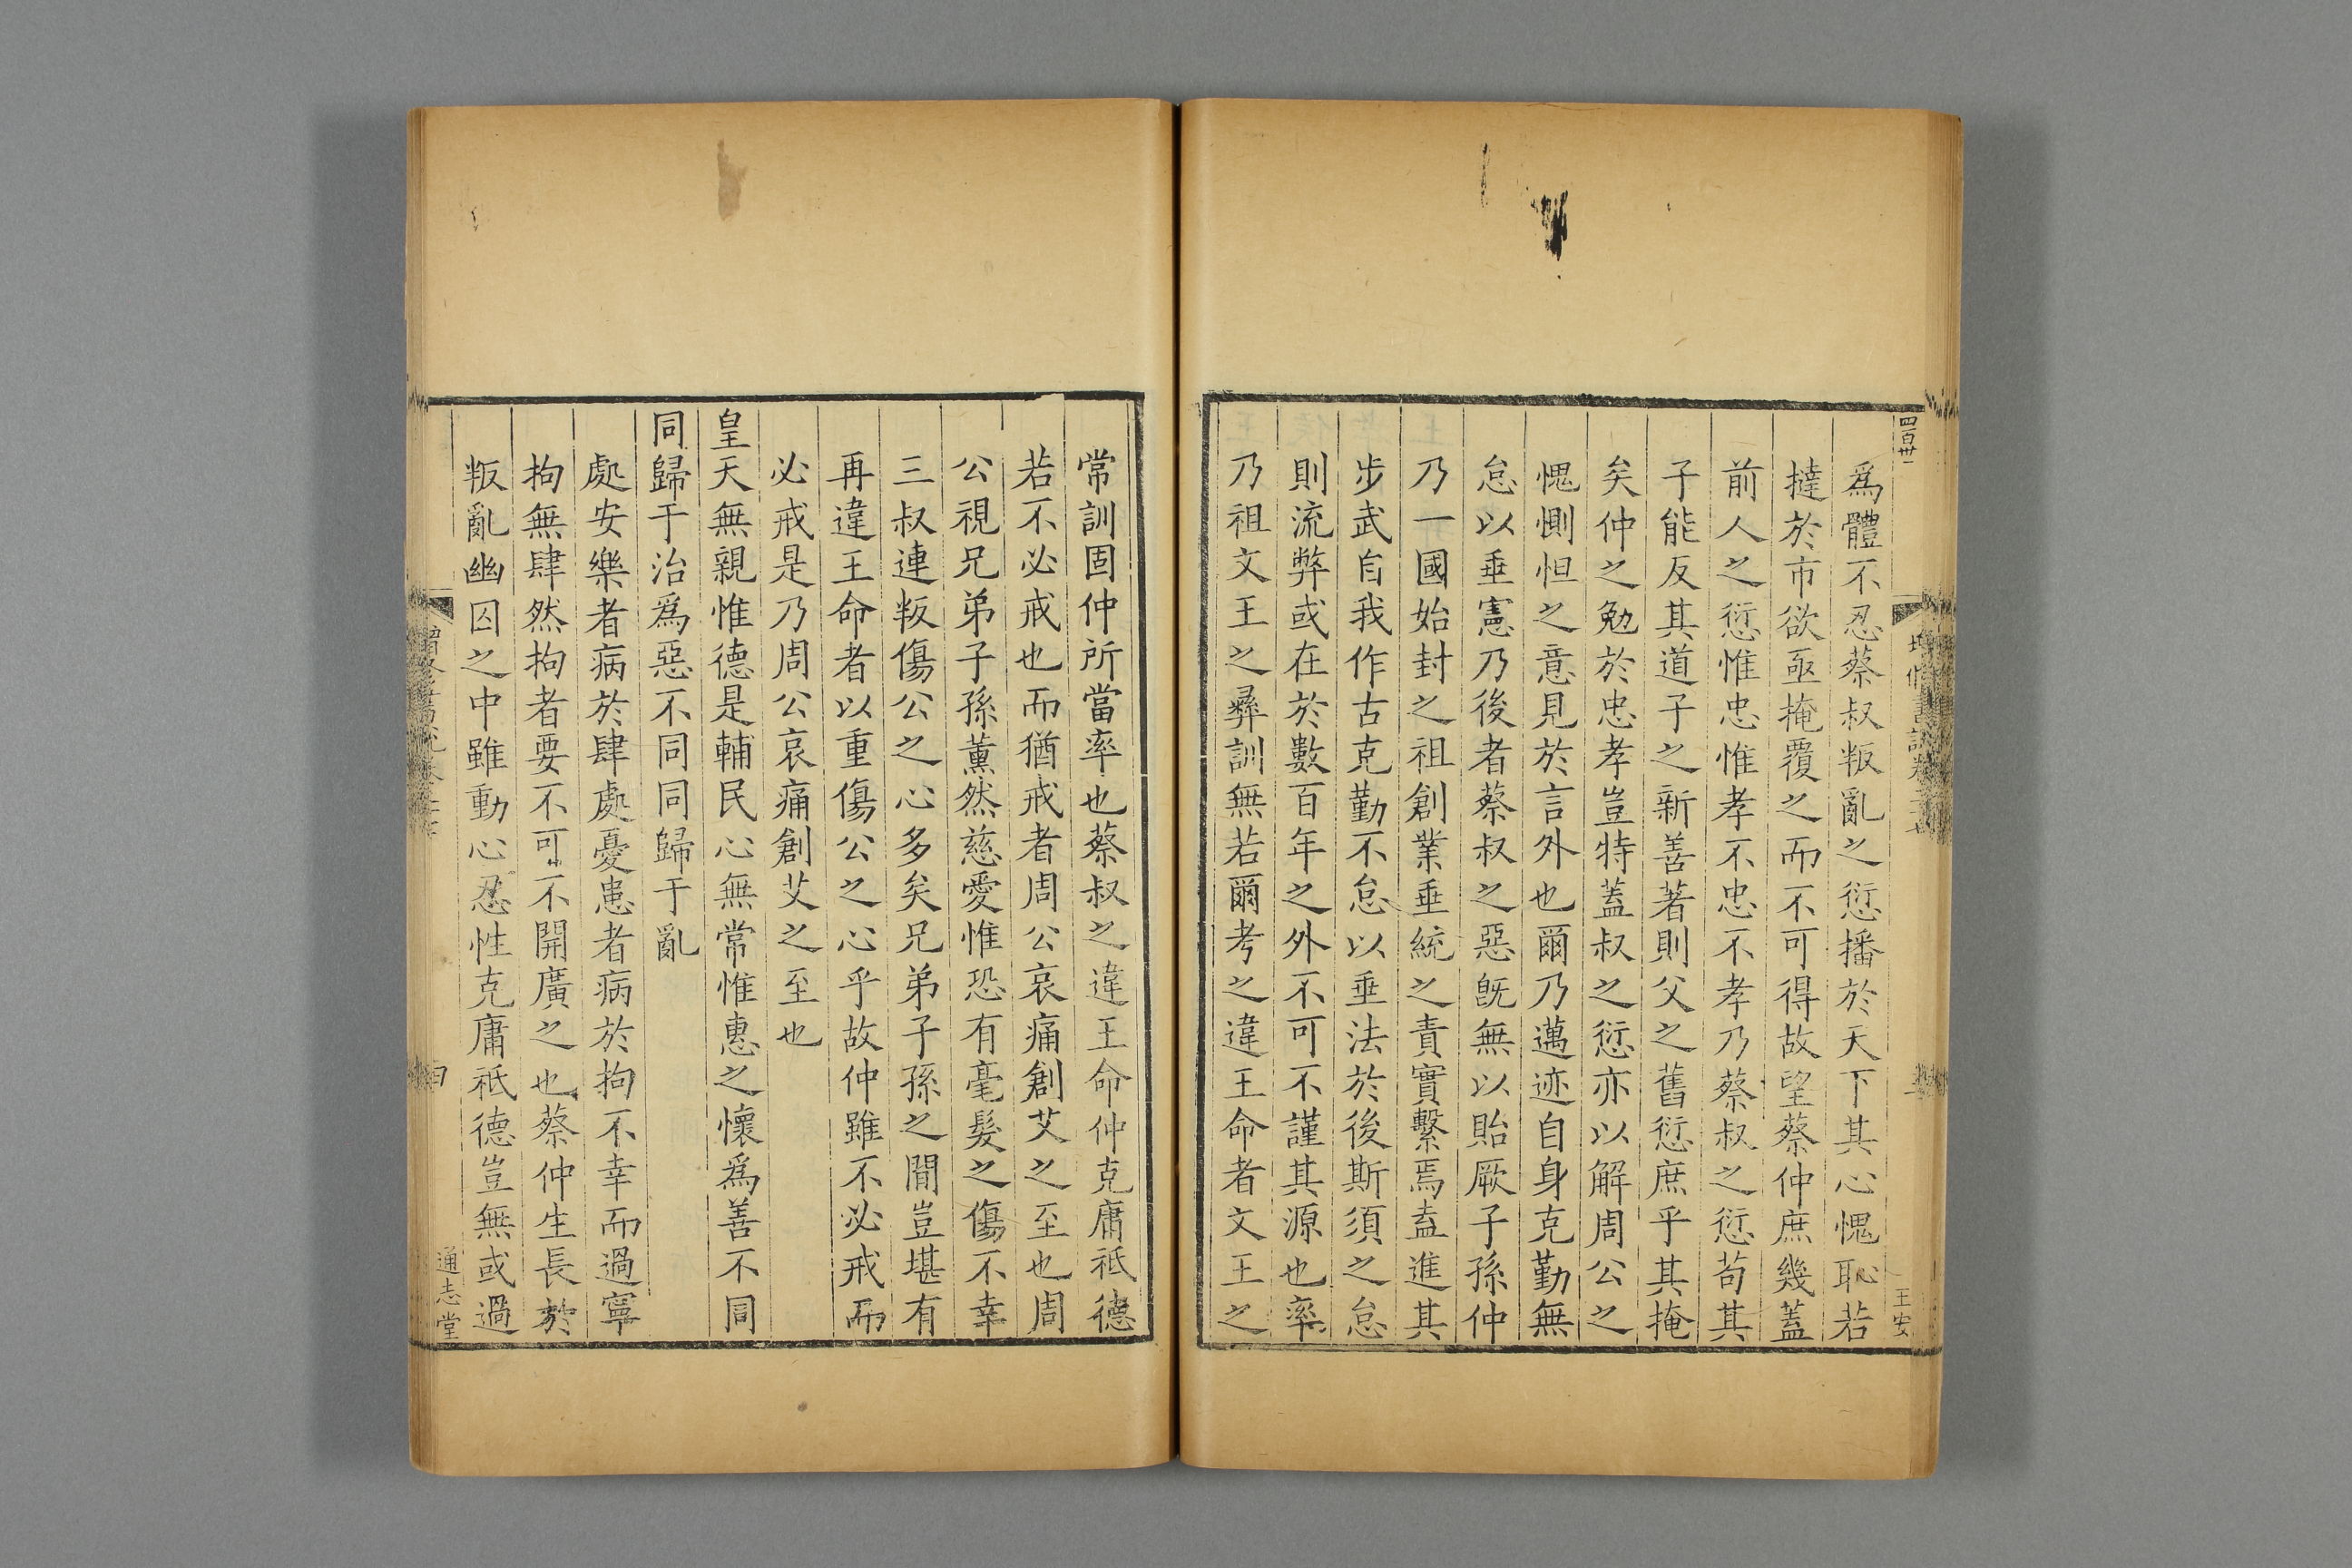 四百卅一
爲體不忍蔡叔叛亂之愆播於天下其心愧恥若
撻於市欲亟掩覆之而不可得故望蔡仲庶幾蓋
前人之愆惟忠惟孝不忠不孝乃蔡叔之愆茍其
子能反其道子之新善著則父之舊愆庶乎其掩
矣仲之勉於忠孝豈特蓋叔之愆亦以解周公之
愧惻怛之意見於言外也爾乃邁迹自身克勤無
怠以垂憲乃後者蔡叔之惡旣無以貽厥子孫仲
乃一國始封之祖創業垂統之責實繫焉盍進其
步武自我作古克勤不怠以垂法於後斯須之怠
則流弊或在於數百年之外不可不謹其源也率
乃祖文王之彝訓無若爾考之違王命者文王之
王安
常訓固仲所當率也蔡叔之違王命仲克庸祗德
若不必戒也而猶戒者周公哀痛創艾之至也周
公視兄弟子孫薰然慈愛惟恐有毫髮之傷不幸
三叔連叛傷公之心多矣兄弟子孫之閒豈堪有
再違王命者以重傷公之心乎故仲雖不必戒而
必戒是乃周公哀痛創艾之至也
皇天無親惟德是輔民心無常惟惠之懷爲善不同
同歸于治爲惡不同同歸于亂
處安樂者病於肆處憂患者病於拘不幸而過寧
拘無肆然拘者要不可不開廣之也蔡仲生長於
叛亂幽囚之中雖動心忍性克庸祗德豈無或過
通志堂